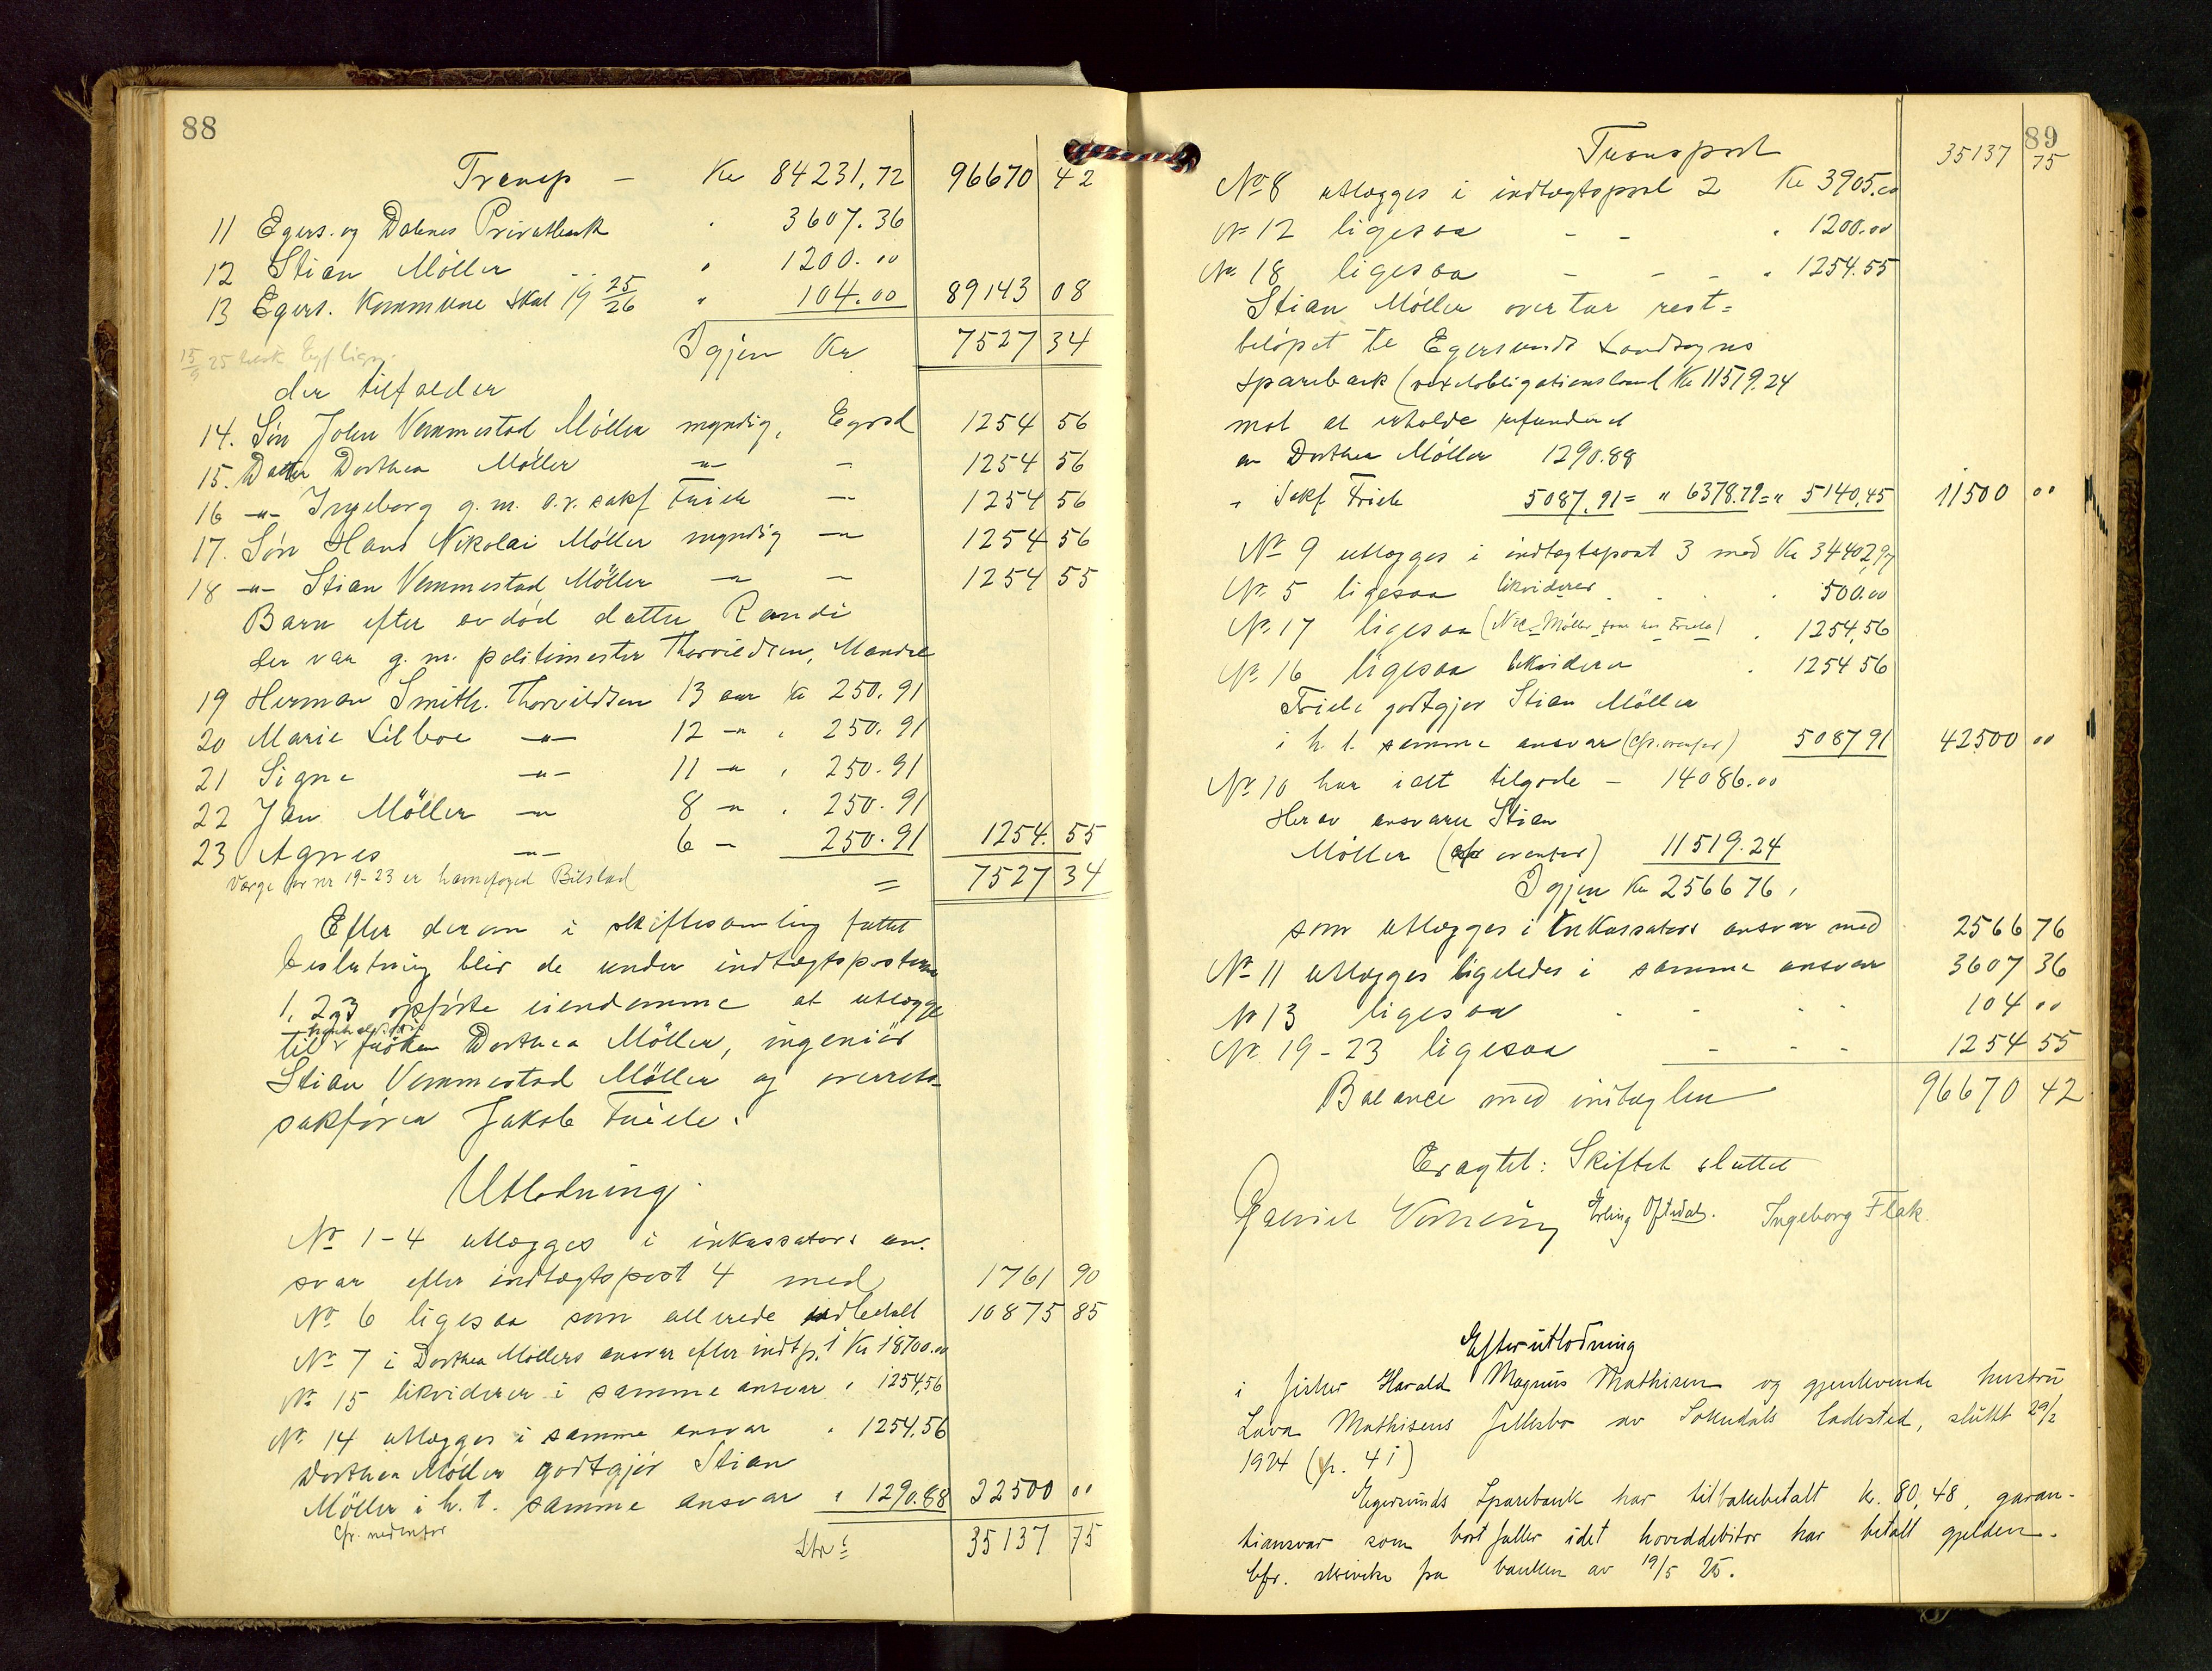 88
Transp – Kr 84231,72 96670 42
11 Egers. og Dalenes Privatbank " 3607.36
12 Stian Möller " 1200.00
13 Egers. Kommune skat 19 25/26 " 104.00 89143 08
Igjen Kr 7527 34
15/9 25
der tilfalder
14. Søn John Vemmestad Möller myndig, Egrsd 1254 56
15. Datter Dorthea Möller –"– – 1254 56
16 –"– Ingeborg g. m. o.r. sakf Friele – 1254 56
17. Søn Hans Nikolai Möller myndig –" 1254 56
18 –"– Stian Vemmestad Möller –" – 1254 55
Barn efter avdöd datter Randi
der var g. m. politimester Thorvildsen, Mandal
19 Herman Smith. Thorvildsen 13 aar Kr 250.91
20 Marie Lilboe –"– 12 –" " 250.91
21 Signe –"– 11 –" " 250.91
22 Jan Möller –" 8 –" " 250.91
23 Agnes –"– 6 – 250.91 1254.55
Værge for nr 19-23 er havnefoged Bilstad = 7527 34
Efter derom i skiftesamling fattet
beslutning blir de under indtægtsposterne
1, 2 og 3 opførte eiendomme at utlægge
til frøken Dorthea Möller, ingeniör
Stian Vemmestad Möller og overrets-
sakfører Jakob Friele.
Utlodning.
No 1-4 utlægges i inkassators an-
svar efter indtægtspost 4 med 1761 90
No 6 ligesaa som allerede indbetalt 10875 85
No 7 i Dorthea Möllers ansvar efter indtp. 1 Kr 18700.00
No 15 likviderer i samme ansvar " 1254,56
No 14 utlægges i samme ansvar " 1254,56
Dorthea Möller godtgjör Stian
Möller i h. t. samme ansvar " 1290.88 22500 00
Cfr. nedenfor
Ltr: 35137 75
89
Transport 35137 75
No 8 utlægges i indtægtspost 2 Kr 3905.00
No 12 ligesaa – – " 1200.00
No 18 ligesaa – – – " 1254.55
Stian Möller overtar rest-
belöpet til Egersunds Landsogns
Sparebank (vexelobligationslaan) Kr 11519.24
mot at erholde refunderet
av Dorthea Möller 1290.88
" Sakf. Friele 5087.91 = " 6378.79 = " 5140,45 11500 00
No 9 utlægges i indtægtspost 3 med Kr 34402,97
No 5 ligesaa likviderer " 500.00
No 17 ligesaa (Nic. Möller Friele) " 1254,56
No 16 ligesaa likviderer " 1254 56
Friele godtgjør Stian Möller
i h. t. samme ansvar (cfr. ovenfor) 5087 91 42500 00
No 10 har i alt tilgode – 14086.00
Herav ansvarer Stian
Möller (cfr ovenfor) 11519.24
Igjen Kr 2566 76,
som utlægges i Inkassators ansvar med 2566 76
No 11 utlægges ligeledes i samme ansvar 3607 36
No 13 ligesaa - - - 104 00
No. 19-23 ligesaa - - - 1254 55
Balance med indtægten 96670 42
Eragtet: Skiftet sluttet
Gabriel Erling Oftedal. Ingeborg Flak.
Efterutlodning
i fisker Harald Magnus Mathisen og gjenlevende hustru
Lava Mathisens fellesbo av Sokndals ladested, sluttet 29/2
1924 (p. 41)
Egersunds Sparebank har tilbakebetalt kr. 80,48, garan-
tiansvar som bortfaller idet hoveddebitor har betalt gjelden.
Cfr. skrivelse fra banken av 19/5 25.